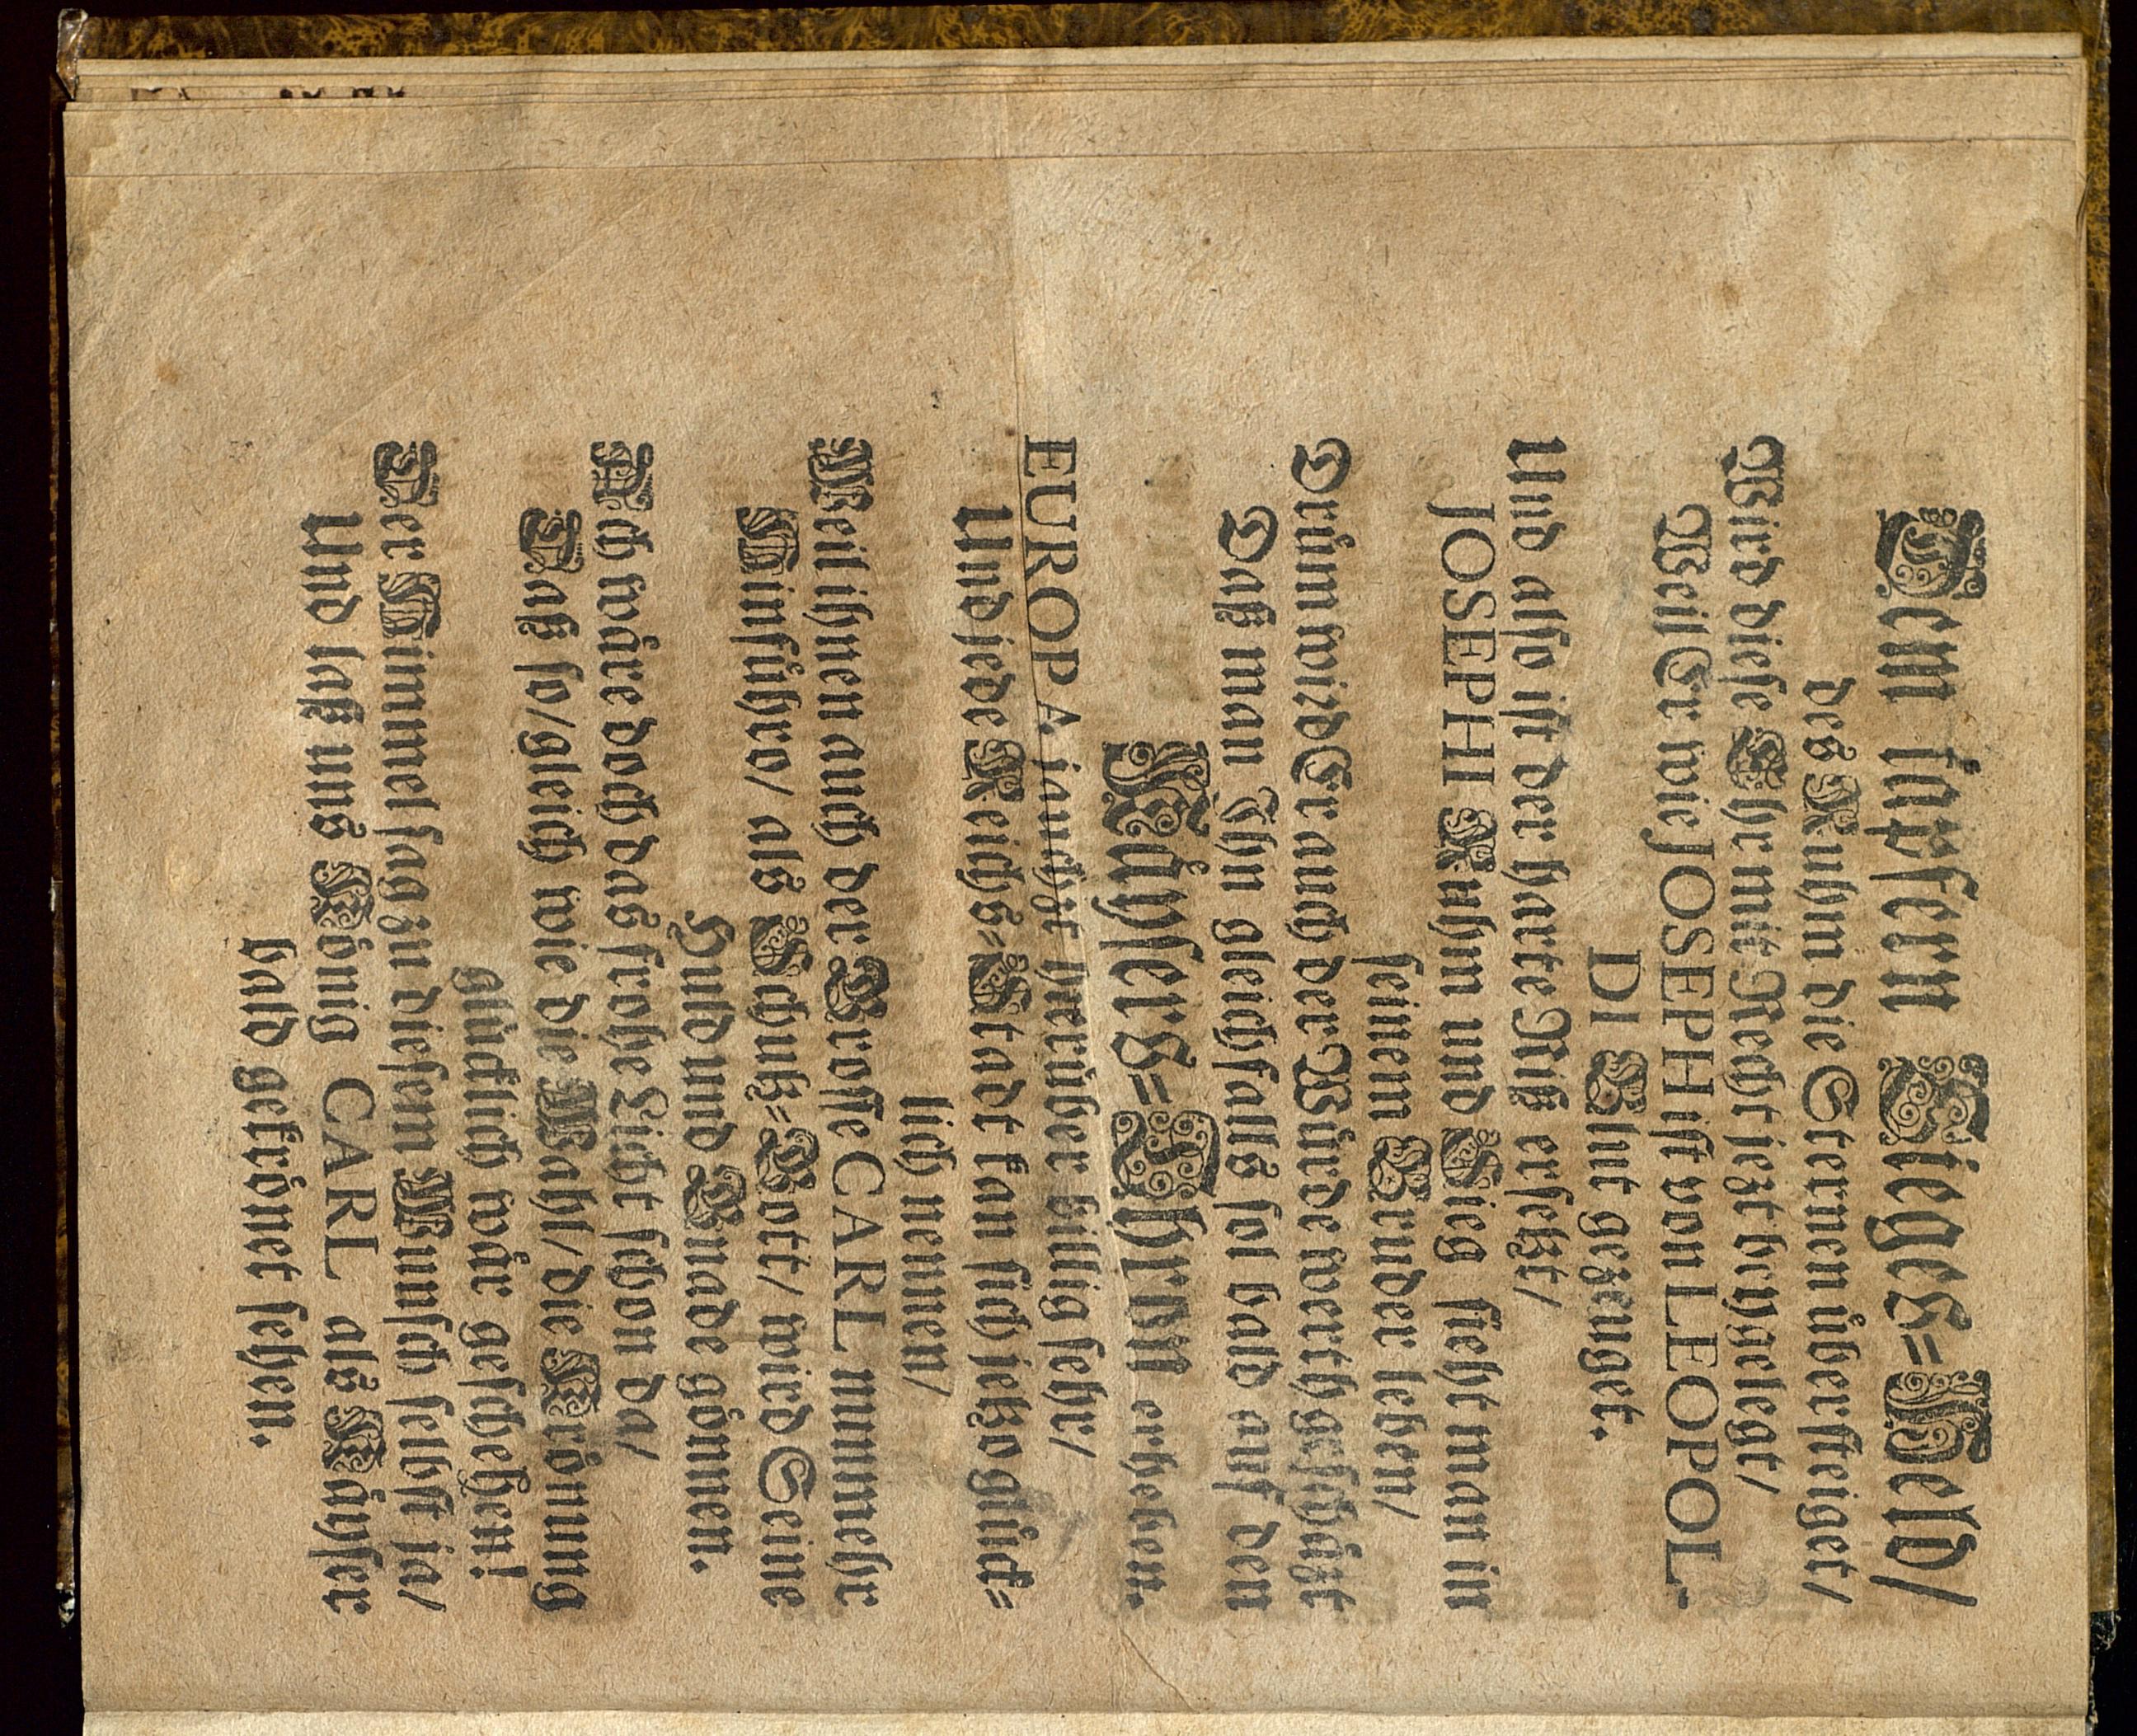 Dem tapfern Sieges-Held/
des Ruhm die Sternen übersteiget/
Wird diese Ehr mit Recht jetzt beygelegt/
Weil Er wie JOSEPH ist von LEOPOL-
DI Blut gezeuget.
Und also ist der harte Riß ersetzt/
JOSEPHI Ruhm und Sieg sieht man in
seinem Bruder leben/
Drüm wird Er auch der Würde werth geschätzt
Daß man Ihn gleichfalls sol bald auf den
Käysers-Thron erheben.
EUROPA jauchzt hierüber billig sehr/
Und jede Reichs-Stadt kan sich jetzo glück-
lich nennen/
Weil ihnen auch der Grosse CARL nunmehr
Hinführo/ als Schutz-Gott/ wird Seine
Huld und Gnade gönnen.
Ach wäre doch das frohe Licht schon da/
Daß so/gleich wie die Wahl/die Krönung
glücklich wär geschehen!
Der Himmel sag zu diesem Wunsch selbst ja/
Und laß uns König CARL als Käyser
bald gekrönet sehen.